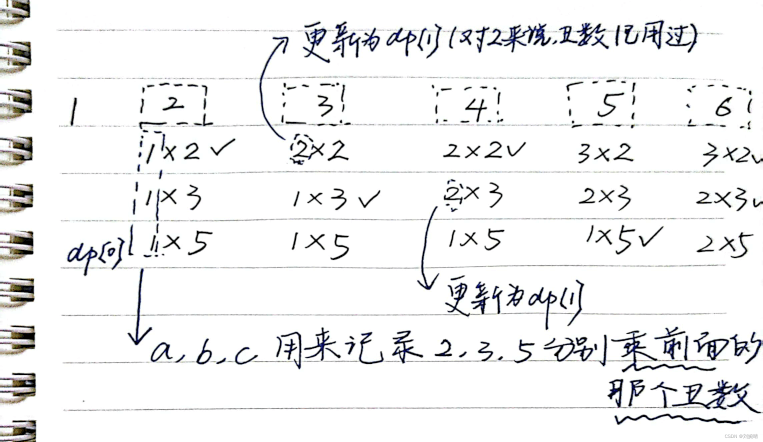 更新为dp[1](对2来说,丑数1已用过)
1 2 3 4 5 6
1×2✓ 2×2 2×2✓ 3×2 3×2✓
1×3 1×3✓ 2×3 2×3 2×3✓
dp[0] 1×5 1×5 1×5 1×5✓ 2×5
更新为dp[1]
a,b,c 用来记录 2,3,5分别乘前面的
那个丑数